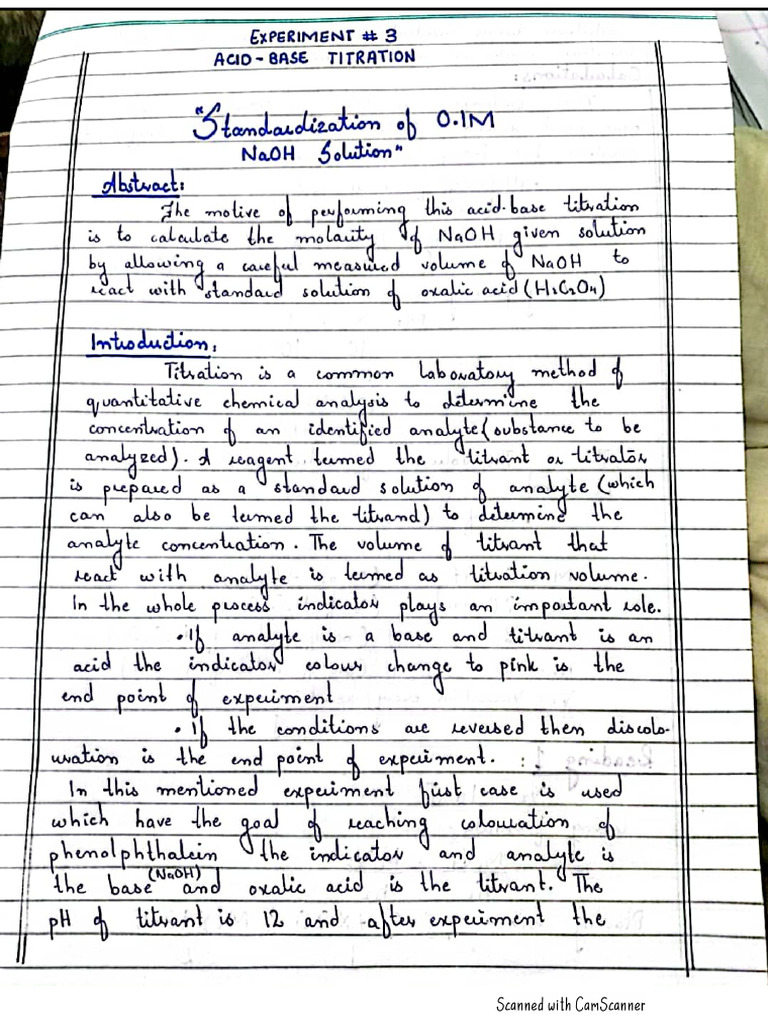 EXPERIMENT # 3
ACID-BASE TITRATION
"Standardization of 0.1M
NaOH Solution"
Abstract:
The motive of performing this acid-base titration
is to calculate the molarity of NaOH given solution
by allowing a careful measured volume of NaOH to
react with standard solution of oxalic acid (H₂C₂O₄)
Introduction:
Titration is a common laboratory method of
quantitative chemical analysis to determine the
concentration of an identified analyte (substance to be
analyzed). A reagent termed the titrant or titrator
is prepared as a standard solution of analyte (which
can also be termed the titrand) to determine the
analyte concentration. The volume of titrant that
react with analyte is termed as titration volume.
In the whole process indicator plays an important role.
• If analyte is a base and titrant is an
acid the indicator colour change to pink is the
end point of experiment
• If the conditions are reversed then discolo-
uration is the end point of experiment.
In this mentioned experiment first case is used
which have the goal of reaching colouration of
phenolphthalein the indicator and analyte is
the base (NaOH) and oxalic acid is the titrant. The
pH of titrant is 12 and after experiment the
Scanned with CamScanner